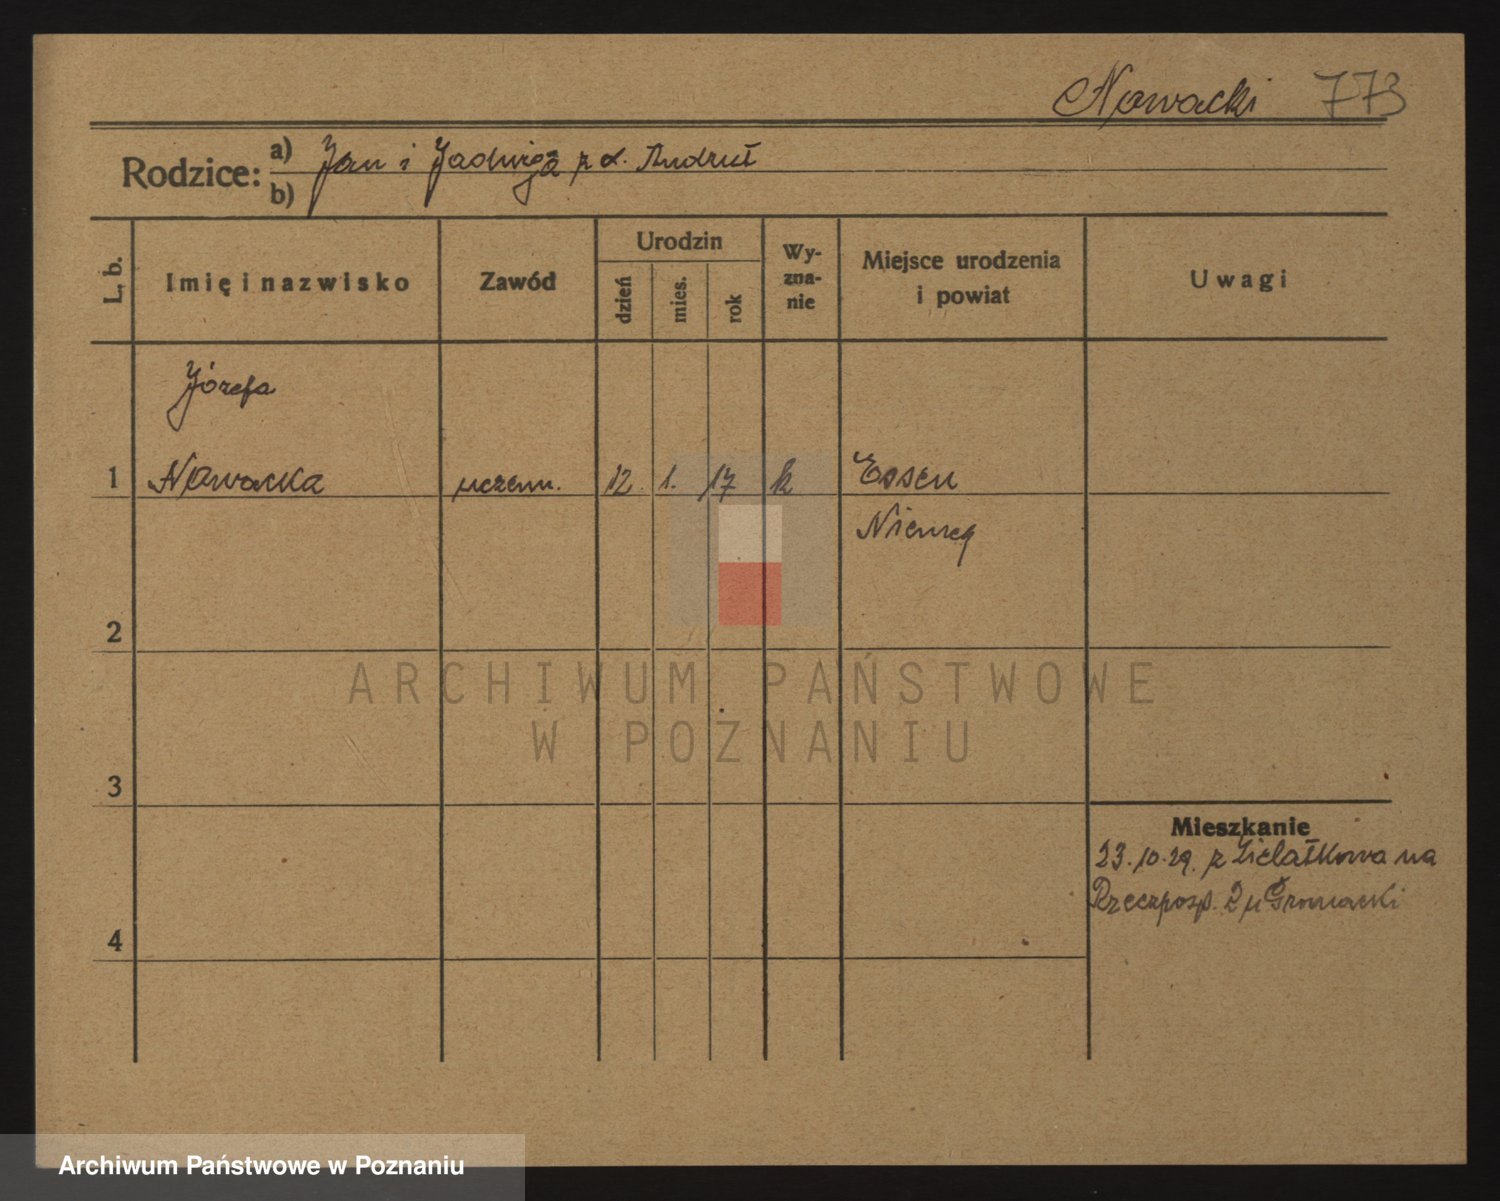 Nowacki 773
Rodzice: a) Jan i Jadwiga z d. Andrut
b)
L. b.
Imię i nazwisko
Zawód
Urodzin
dzień
mies.
rok
Wy-
zna-
nie
Miejsce urodzenia
i powiat
Uwagi
Józefa
1 Nowacka uczenn. 12. 1. 17 k Essen
Niemcy
2
ARCHIWUM PAŃSTWOWE
W POZNANIU
3
Mieszkanie
23.10.29. z Zielątkowa na
Rzeczposp. 2 u Gromacki
4
Archiwum Państwowe w Poznaniu